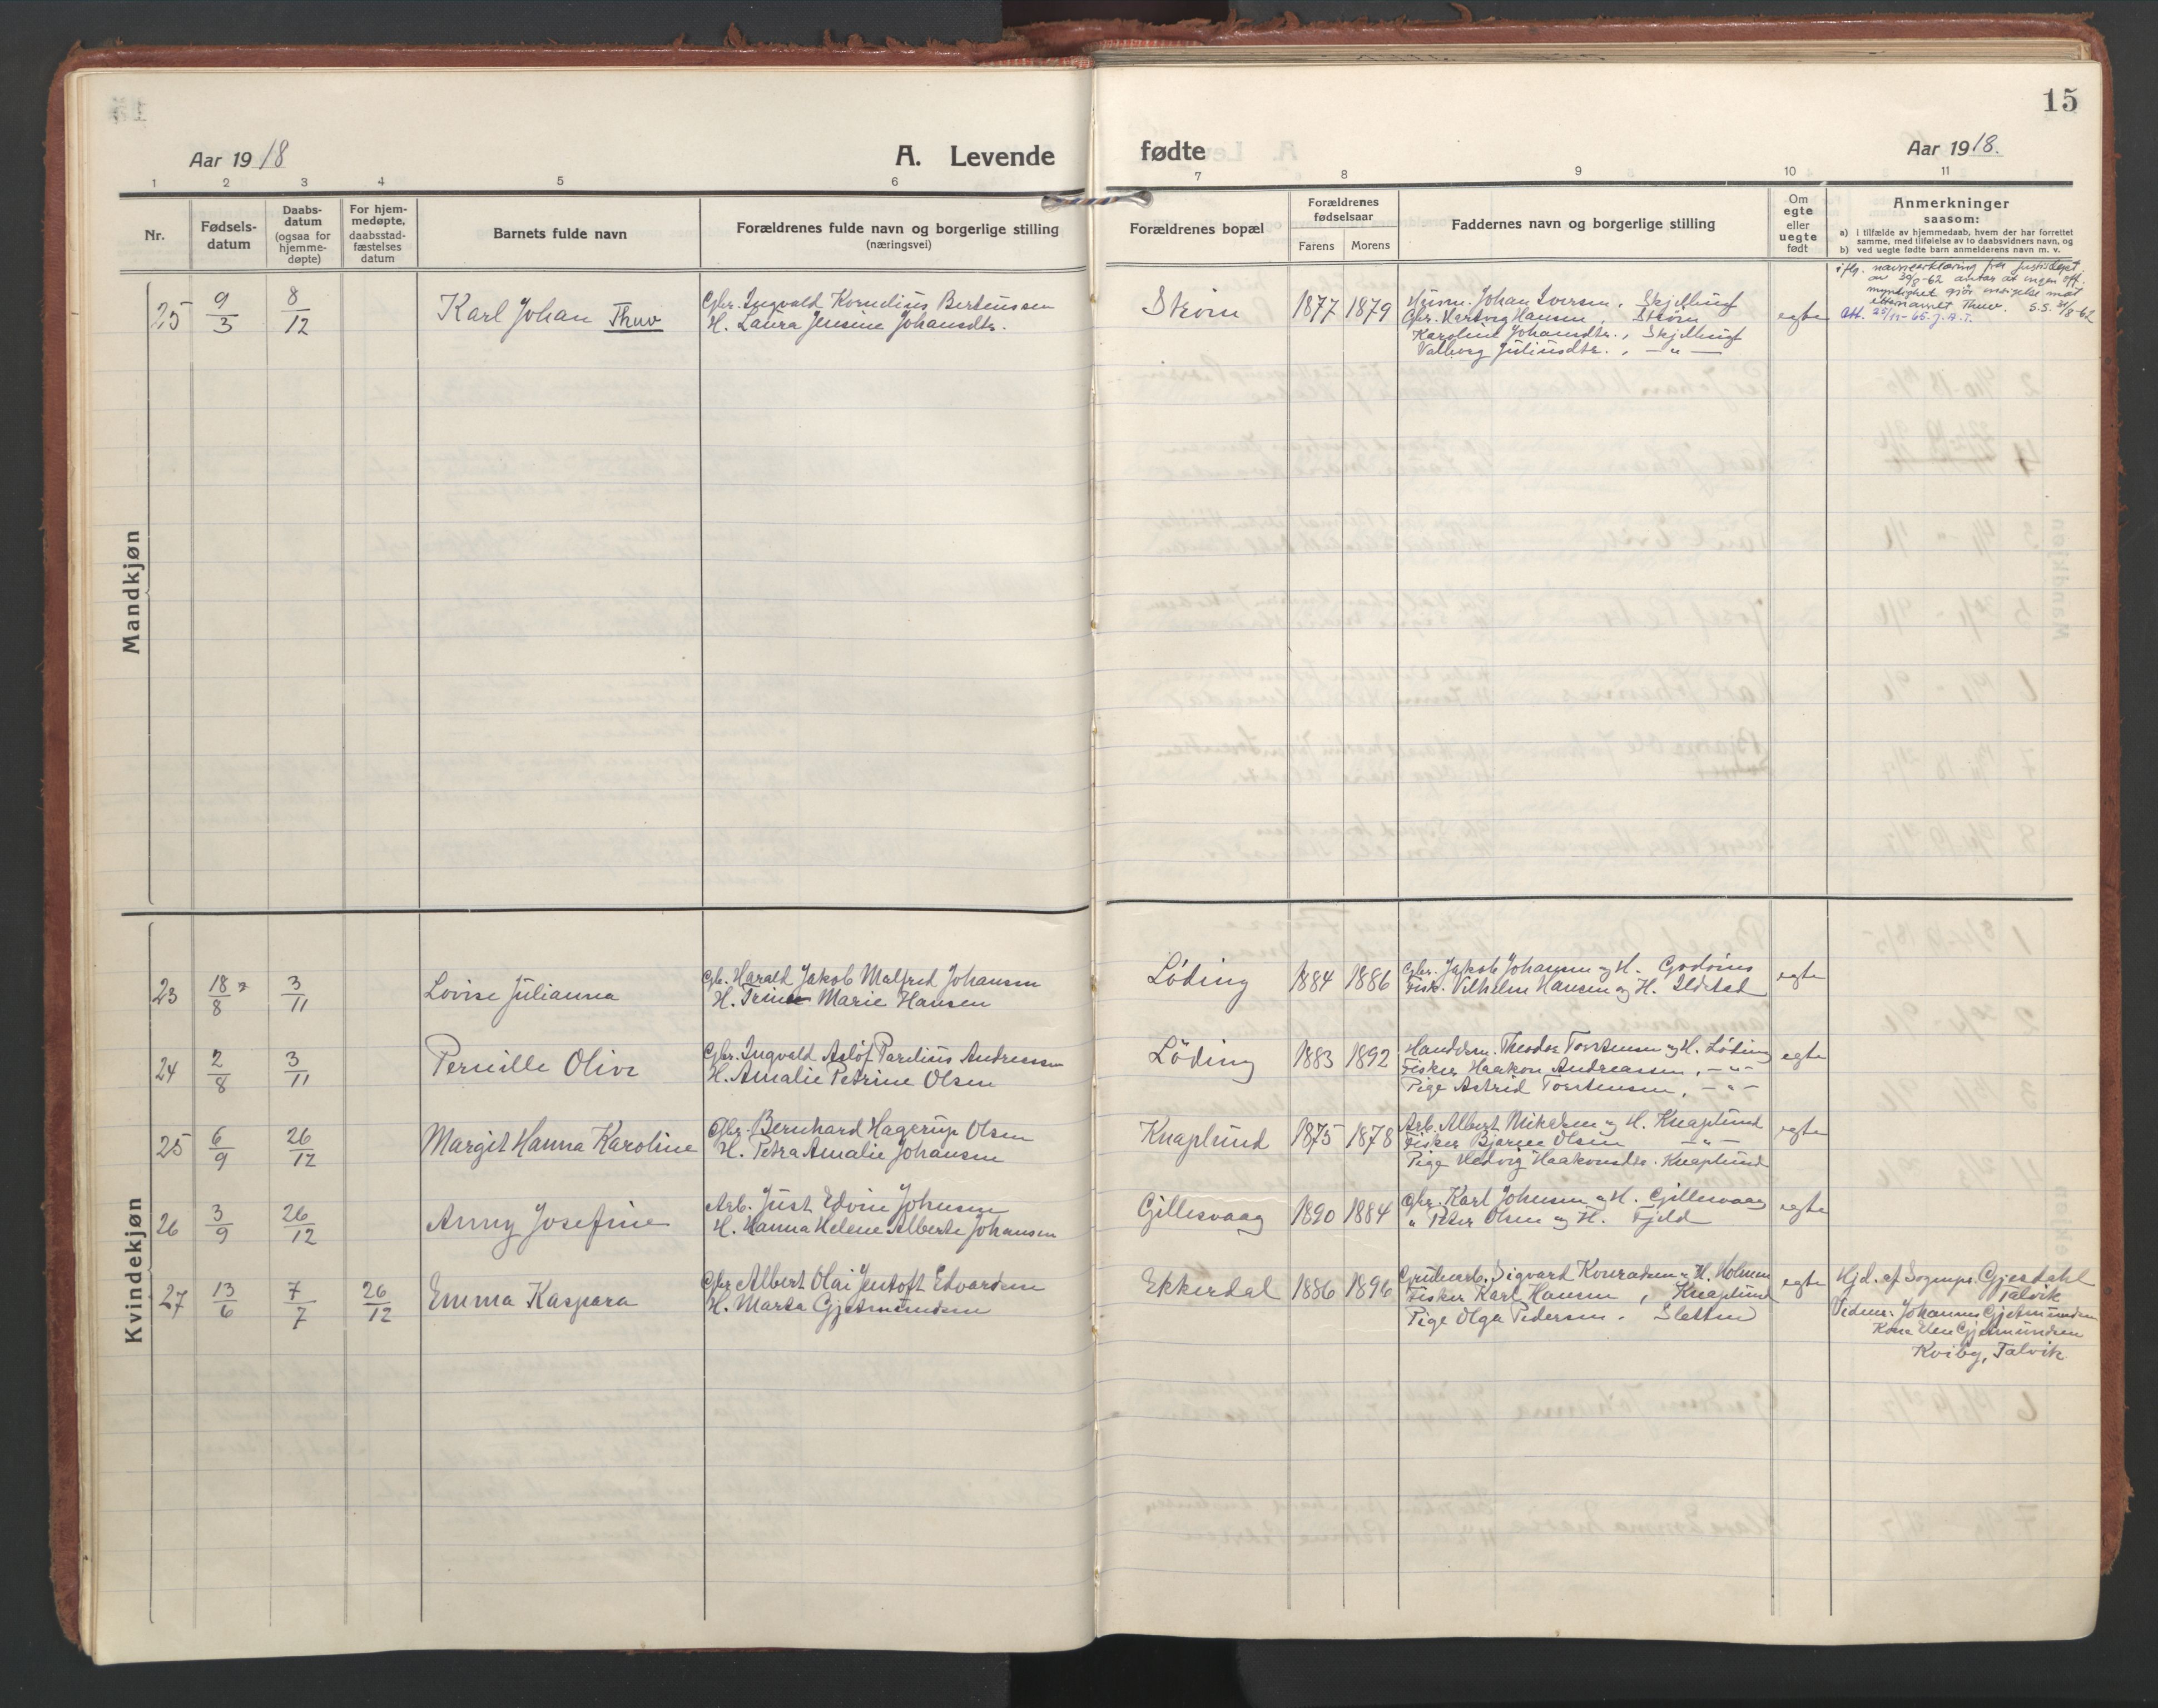 15
Aar 1918
A. Levende fødte
Aar 1918.
1 2 3 4 5 6 7 8 9 10 11
Nr.
Fødsels-
datum
Daabs-
datum
(ogsaa for
hjemme-
døpte)
For hjem-
medøpte,
daabsstad-
fæstelses
datum
Barnets fulde navn
Forældrenes fulde navn og borgerlige stilling
(næringsvei)
Forældrenes bopæl
Forældrenes
fødselsaar
Farens Morens
Faddernes navn og borgerlige stilling
Om
egte
eller
uegte
født
Anmerkninger
saasom:
a) i tilfælde av hjemmedaab, hvem der har forrettet
samme, med tilføielse av to daabsvidners navn, og
b) ved uegte fødte barn anmelderens navn m. v.
Mandkjøn
25 9/3 8/12 Karl Johan Thuv
Gbr. Ingvald Kornelius Bertinssen
H. Laura Jensine Johansdtr.
Strøm 1877 1879
Husm. Johan Iversen, Skjelling
Gbr. Hartvig Hansen, Strøm
Karoline Johansdtr., Skjelling
Valborg Juliusdtr., — " —
egte
ifлg. navneerklæring fra Justisdept.
av 30/8-62 antar at ingen off.
myndighet gjør innsigelse mot
etternavnet Thuv. S.S. 31/8-62
Att. 25/11-65. J.A.T.
Kvindekjøn
23 18/8 3/11 Lovise Julianna
Gbr. Harald Jakob Malfred Johansen
H. Trine Marie Hansen
Løding 1884 1886
Gbr. Jakob Johansen og H. Godønes
Fisk. Vilhelm Hansen og H. Ildstad
egte
24 2/8 3/11 Pernille Olive
Gbr. Ingvald Asløf Parelius Andreassen
H. Amalie Petrine Olsen
Løding 1883 1892
Handelsm. Theodor Torstensen og H. Løding
Fisker Haakon Andreassen, — " —
Pige Astrid Torstensen, — " —
egte
25 6/9 26/12 Margit Hanna Karoline
Gbr. Bernhard Hagerup Olsen
H. Petra Amalie Johansen
Knaplund 1875 1878
Arb. Albert Mikalsen og H. Knaplund
Fisker Bjarne Olsen — " —
Pige Hedvig Haakonsdtr. Knaplund
egte
26 3/9 26/12 Anny Josefine
Arb. Just Edvin Johnsen
H. Hanna Helene Alberte Johansen
Gillesvaag 1890 1884
Gbr. Karl Johnsen og H. Gillesvaag
" Peter Olsen og H. Fjeld
egte
27 13/6 7/7 26/12 Emma Kaspara
Gbr Albert Olai Jentoft Edvardsen
H. Marta Gjetmundsen
Ekkerdal 1886 1896
Grubearb. Sigvard Konradsen og H. Holmen
Fisker Karl Hansen, Knaplund
Pige Olga Pedersen. Sletten
egte
Hjd. af Sognepr. Gjesdahl
Talvik
Vidner: Johannes Gjetmundsen
Kona Elen Gjetmundsen
Kviby, Talvik